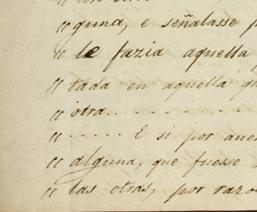 " guna, e señalasse
" le fazia aquella
" tada en aquella
" otra. . . . . . . . . .
" . . . . . E si por
" alguna, que fuesse
" las otras, por razo